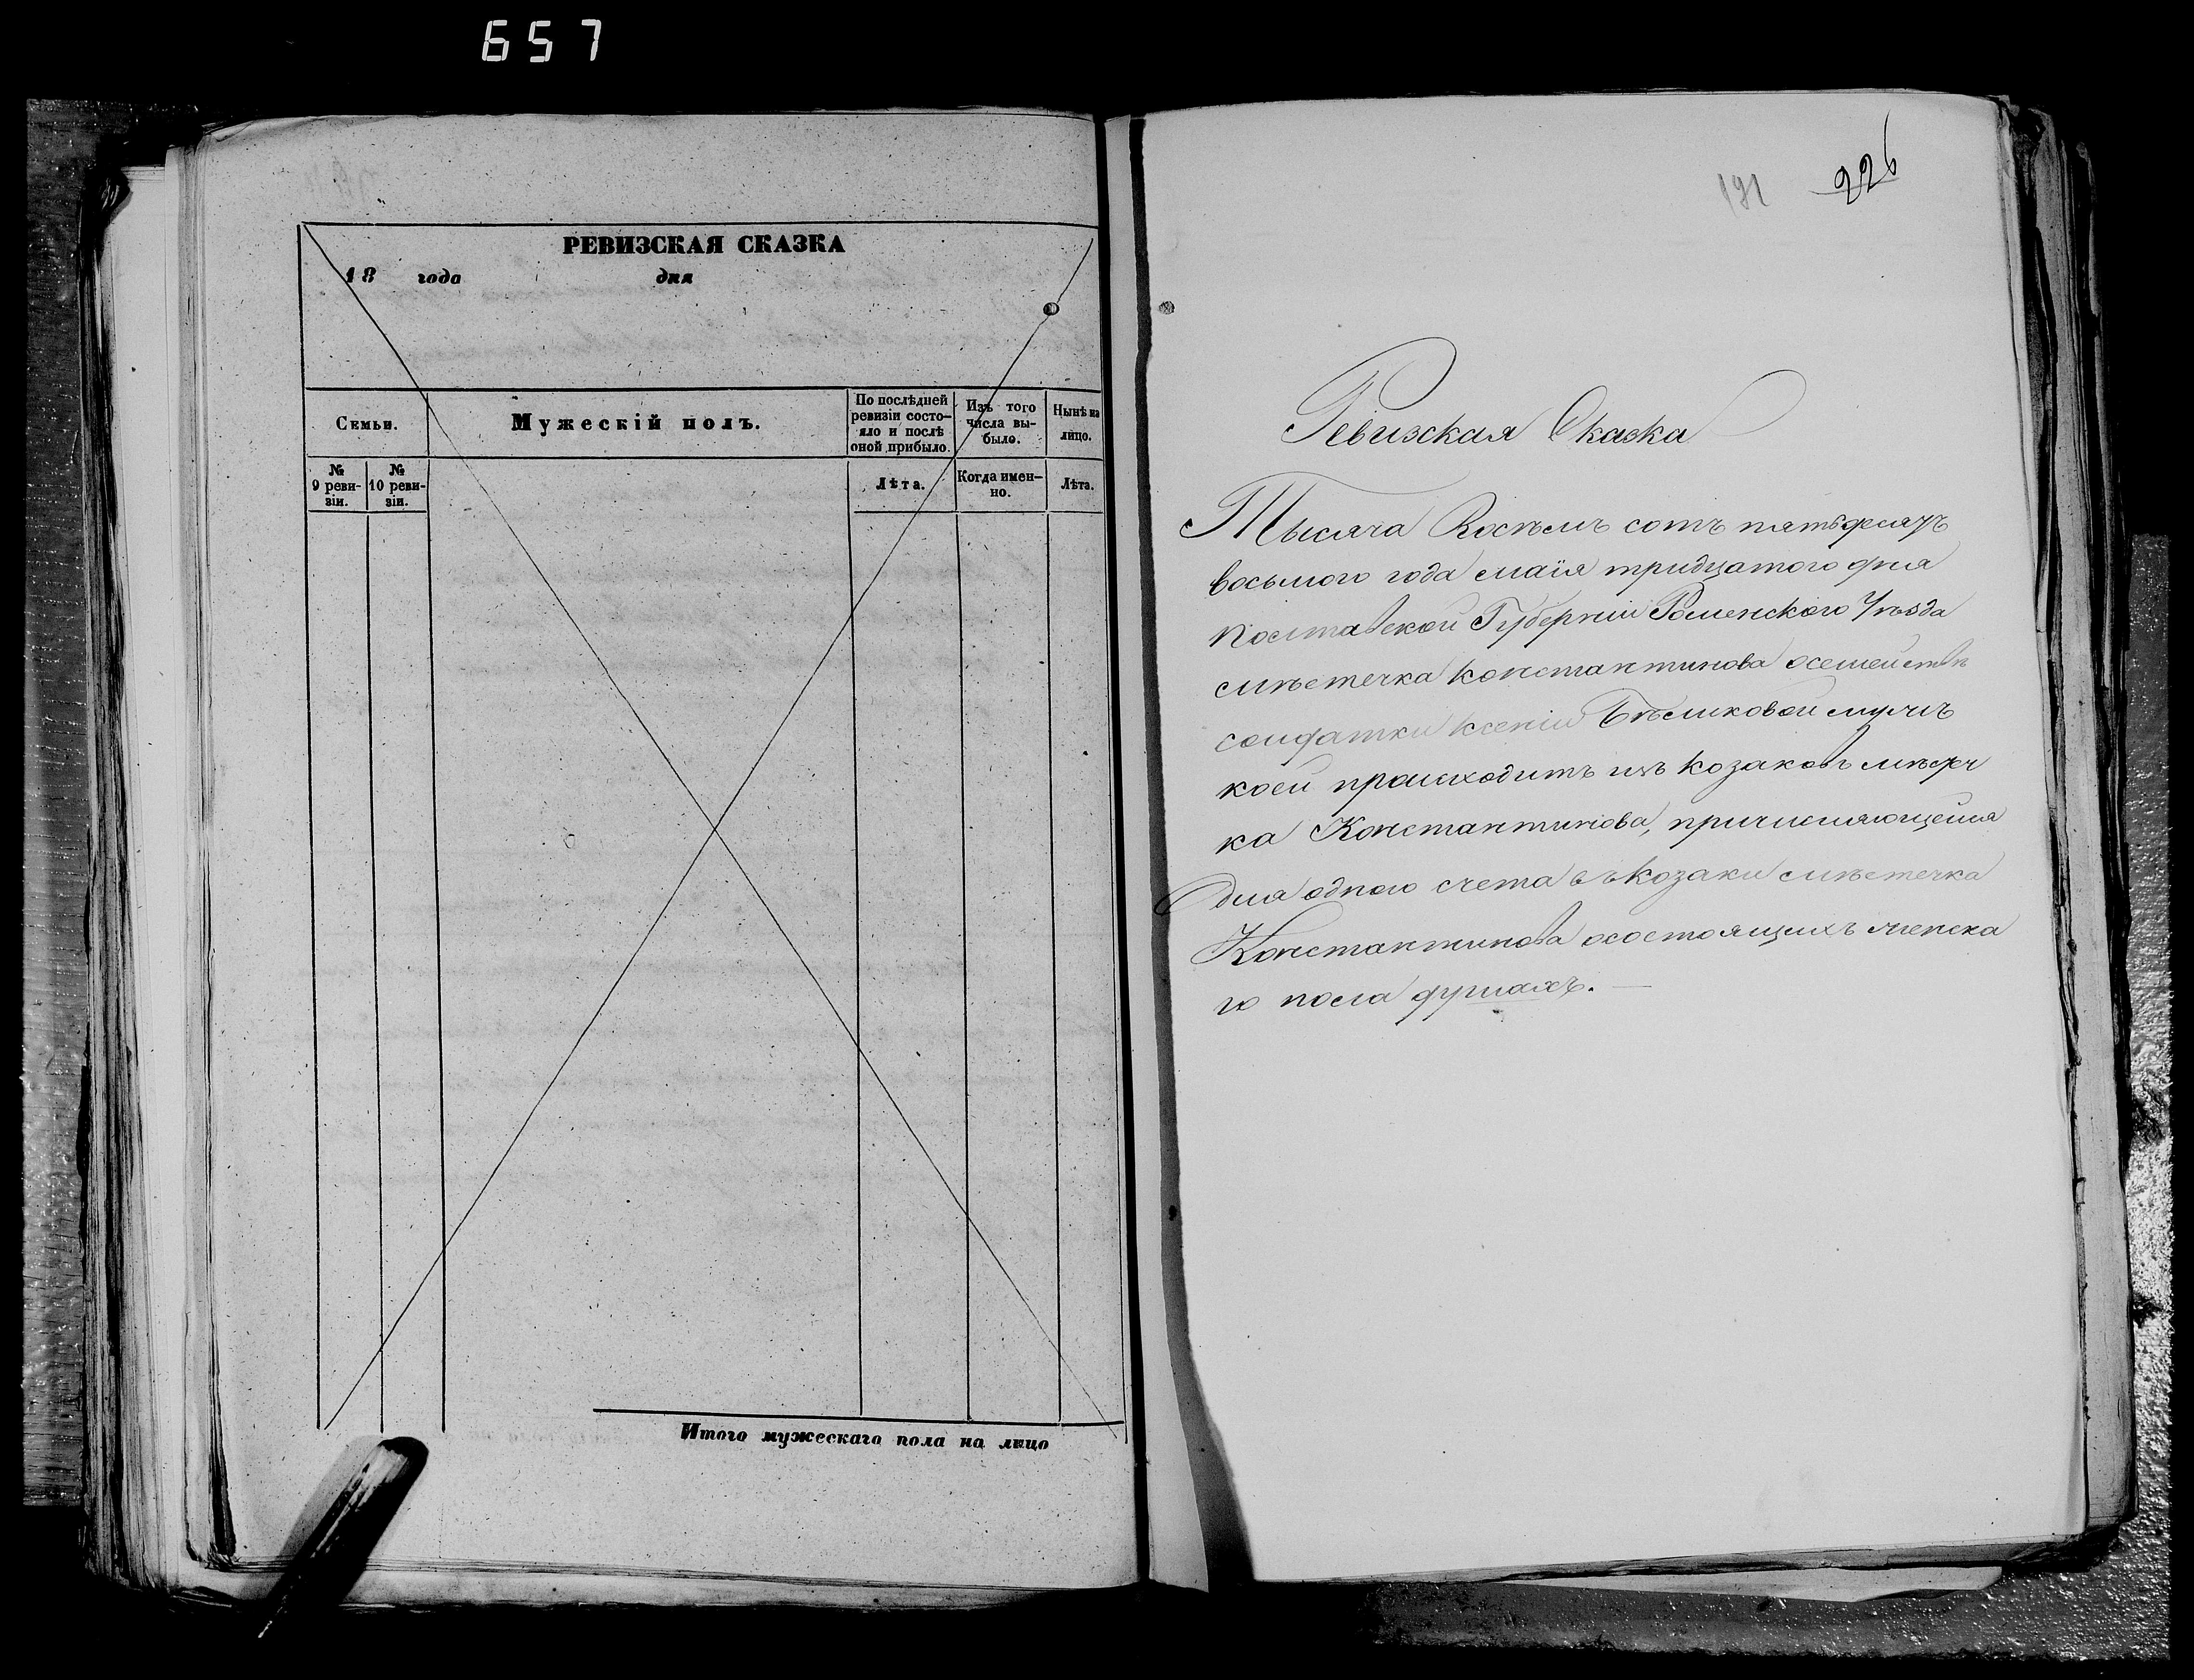 657
РЕВИЗСКАЯ СКАЗКА
18 года дня
Семьи.
Мужескій полъ.
По послѣдней ревизіи состо-
яло и послѣ оной прибыло.
Изъ того числа вы-
было.
Нынѣ на лицо.
№ 9 реви-
зіи.
№ 10 реви-
зіи.
Лѣта.
Когда имен-
но.
Лѣта.
Итого мужескаго пола на лицо
191 226
Ревизская Сказка
Тысяча Восѣмъ сотъ пятьдесятъ
восьмого года маія тридцатого дня
Полтавской Губерніи Роменского Уѣзда
мѣстечка Константинова осемействѣ
солдатки Ксеніи Бѣликовой мужъ
коей происходитъ изъ козаковъ мѣстеч
ка Константинова, причисляющейся
для одного счета въ козаки мѣстечка
Константинова осостоящихъ женска
го пола душахъ.